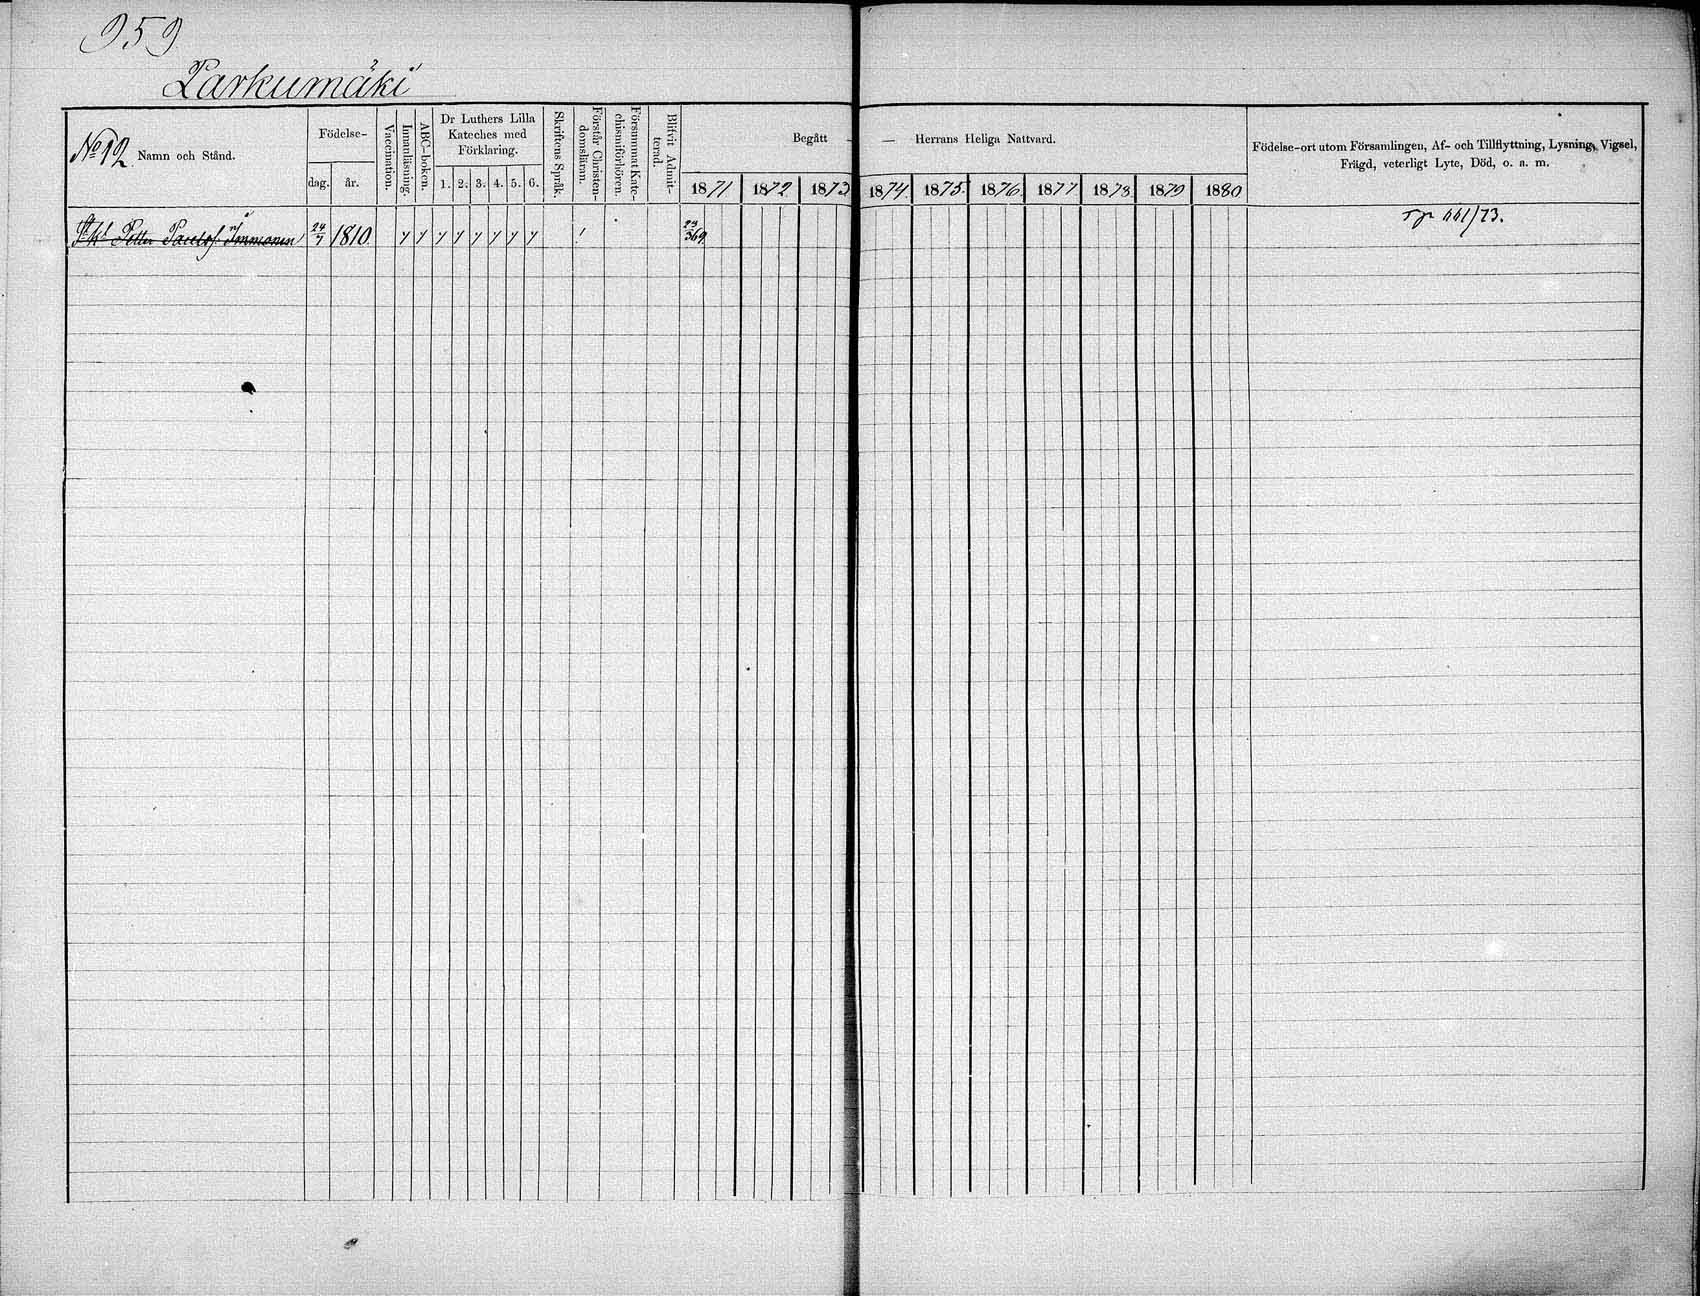 959
Parkumäki
No 12. Namn och Stånd.
Födelse-
dag. år.
Vaccination.
Innanläsning.
ABC-boken.
Dr Luthers Lilla
Kateches med
Förklaring.
1. 2. 3. 4. 5. 6.
Skriftens Språk.
Förstår Christen-
domsläran.
Försummat Kate-
chismiförhören.
Blifvit Admit-
terad.
Begått — — Herrans Heliga Nattvard.
1871 1872. 1873 1874. 1875. 1876. 1877. 1878. 1879 1880
Födelse-ort utom Församlingen, Af- och Tillflyttning, Lysning, Vigsel,
Frägd, veterligt Lyte, Död, o. a. m.
Petter Paulsf. Immonen 24/7 1810. 23/369.
661/73.